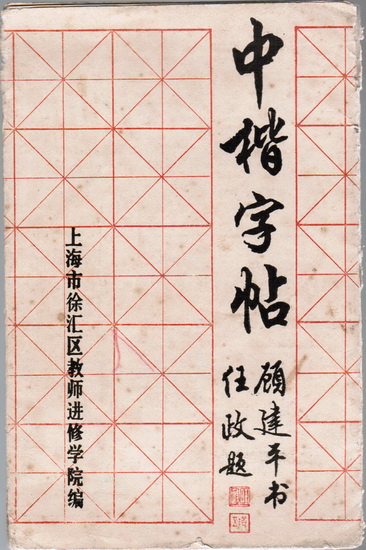 中楷字帖
顾建平书
任政题
上海市徐汇区教师进修学院编